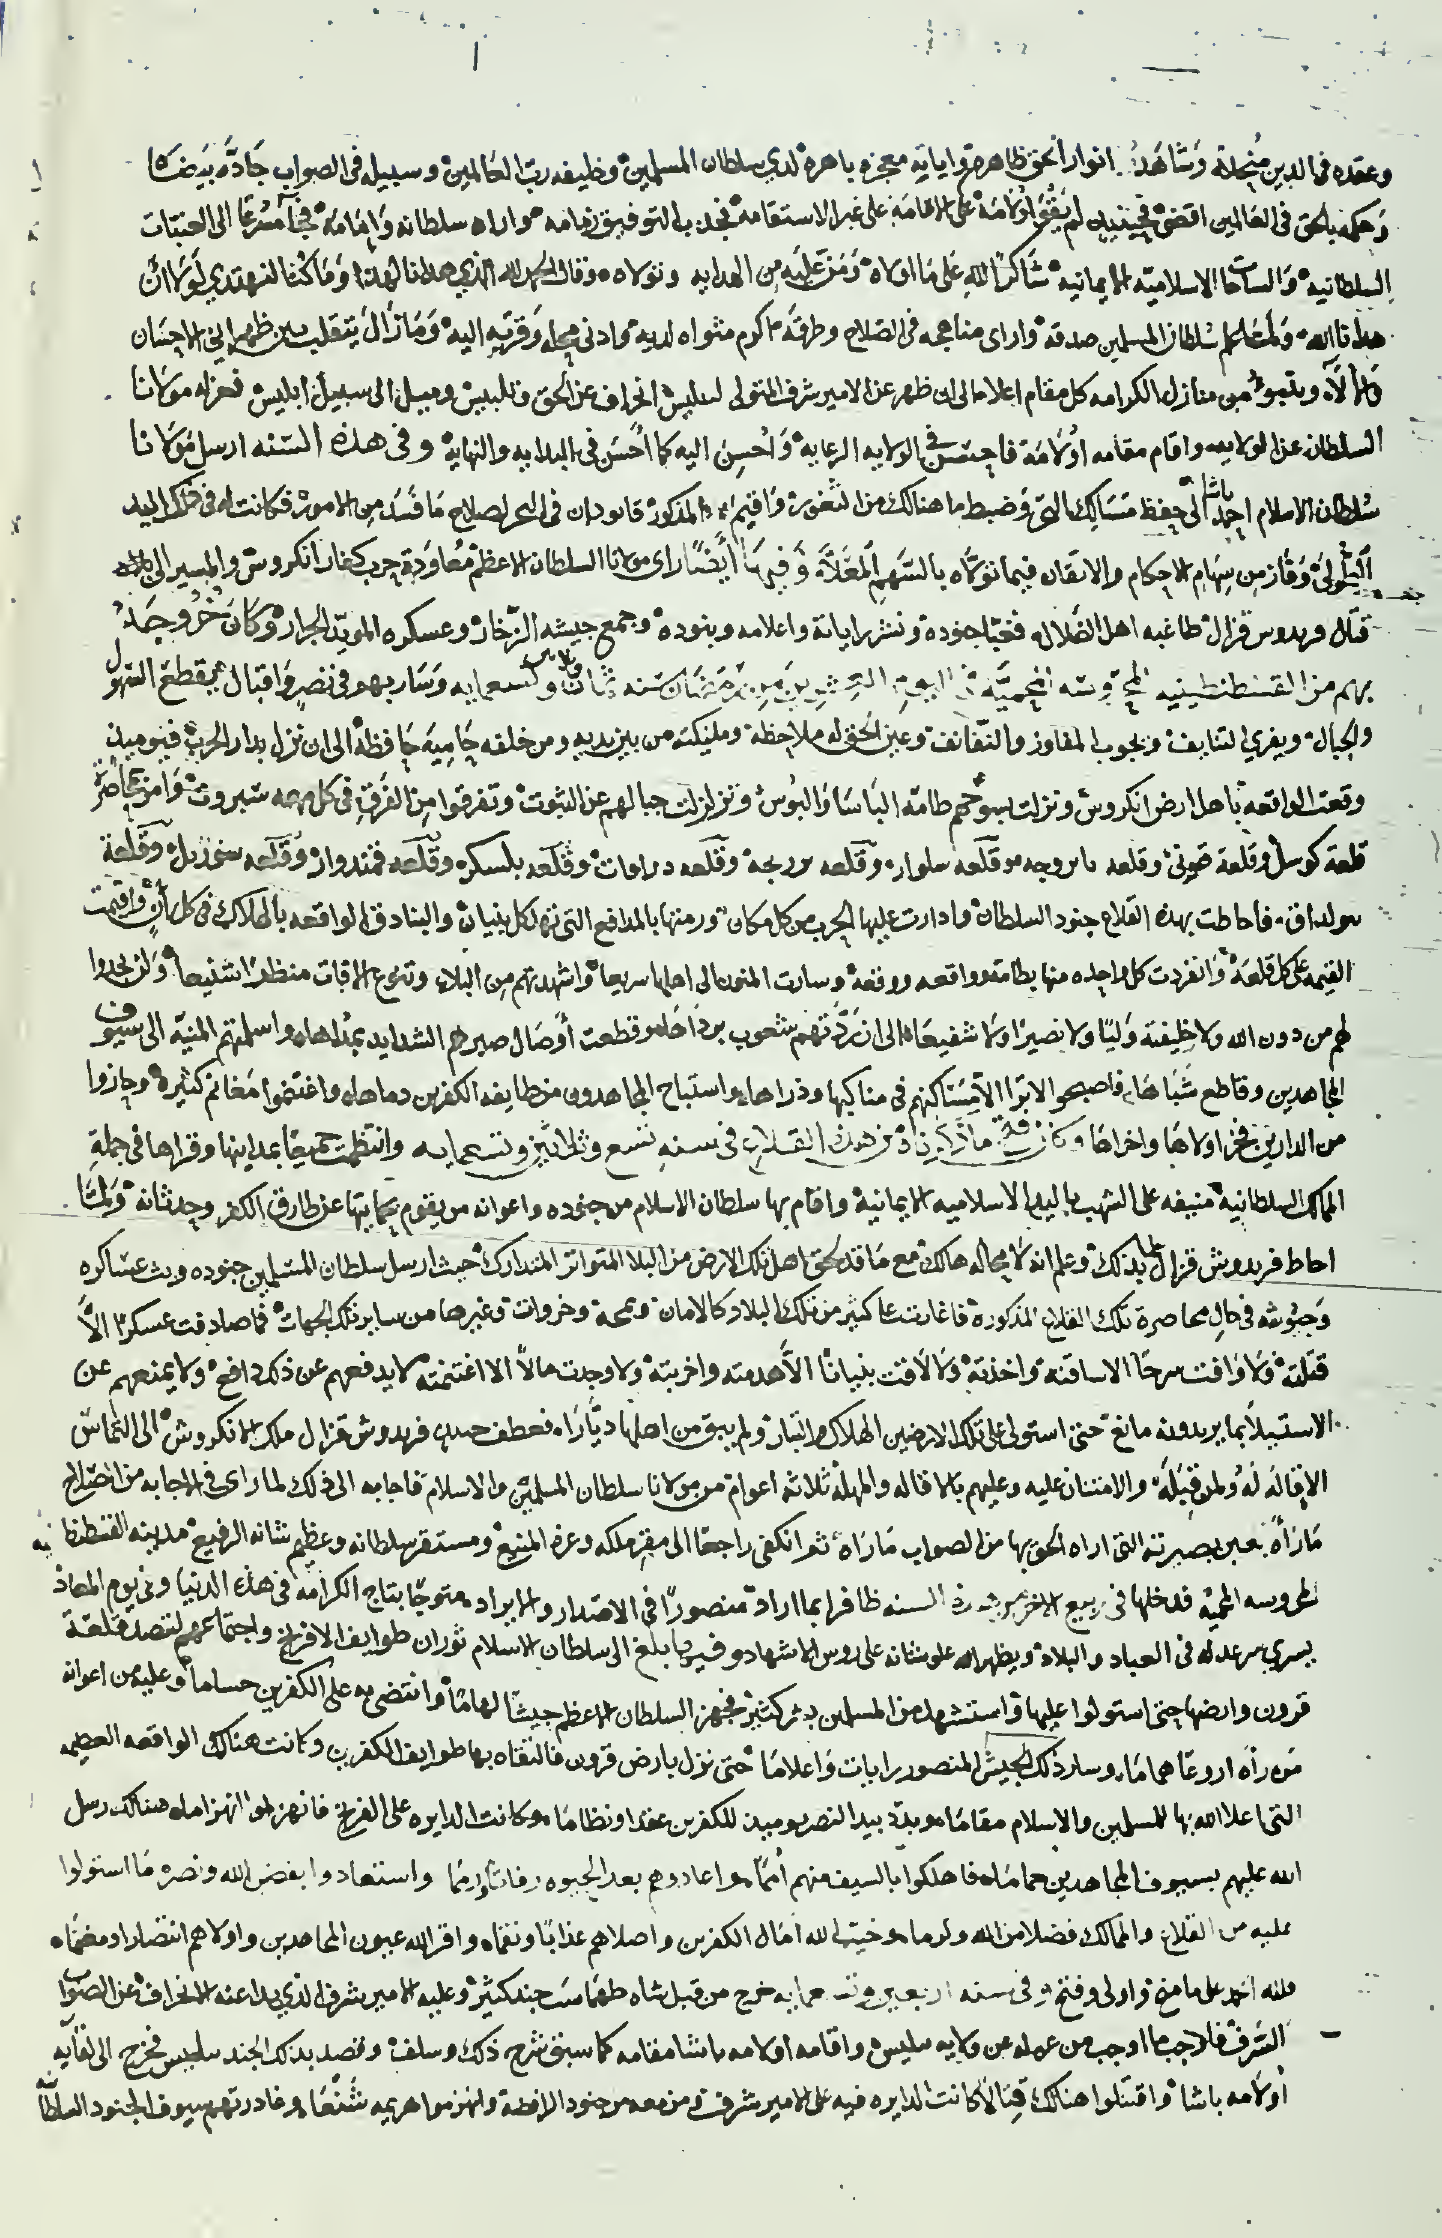 وعقده في الدين منحلة وشاهد انوار الحق ظاهرة وايايه معجزه باهره لدي سلطان المسلمين وخليفه رب العالمين وسبيله في الصواب جاده بيضا
وحكمه بالحق في العالمين اقضى فحينيذ لم يقو اولامه على الاقامة على غير الاستقامة فجذب التوفيق زمامه واراه سلطانه وامامه فجا مسرعا الى العتبات
السلطانيه والساحات الاسلاميه الايمانيه شاكرا لله على ما اولاه ومن عليه من الهدايه وتولاه وقال الحمد لله الذي هدانا لهذا وما كنا لنهتدي لولا ان
هدانا الله ولما علم سلطان المسلمين صدقه وراى مناهجه في الصلاح وطرقه اكرم مثواه لديه وادنى محله وقربه اليه وما زال يتقلب بين ظهراني الاحسان
والالاء ويتبوا من منازل الكرامه كل مقام اعلا الى ان ظهر عن الامير شرف المتولي لبتليس انحراف عن الحق وتلبيس وميل الى سبيل ابليس فعزله مولانا
السلطان عن الولايه واقام مقامه اولامه فاحسن في الولايه الرعايه واحسن اليه كما احسن في البدايه والنهايه وفي هذه السنه ارسل مولانا
سلطان الاسلام احمد باشا الى حفظ مسالك البحر وضبط ما هنالك من الثغور واقيم المذكور قابودان في البحر لصلاح ما فسد من الامور فكانت له في ذلك اليد
الطولى وفاز من سهام الاحكام والاتقان فيما تولاه بالسهم المعلى وفيها ايضا راى مولانا السلطان الاعظم معاودة حرب كفار انكروس والمسير الى بلاد
قتال فريدوس قزال طاغيه اهل الضلال فعبا جنوده ونشر راياته واعلامه وبنوده وجمع جيشه الزخار وعسكره المويد الجرار وكان خروجه
بهم من القسطنطينيه المحروسه المحميه في اليوم العشرين من رمضان سنه ثمان وثلاثين وتسعمايه وسار بهم في نصر واقبال يقطع السهول
والجبال ويفري التنايف ويجوب المفاوز والنفانف وعين الحق له ملاحظه ومليكته من بين يديه ومن خلفه حاميه حافظه الى ان نزل بدار الحرب فيوميذ
وقعت الواقعه باهل ارض انكروس ونزلت بسوحهم طامه الباسا والبوس وتزلزلت جبالهم عن الثبوت وتفرقوا من الفرق في كل مهمه سبروت وامر بمحاصرة
قلعة كوسل وقلعة صوني وقلعه وقلعه سلوار وقلعه وقلعه وقلعه بلسكره وقلعه وقلعه وقلعة
فاحاطت بهذه القلاع جنود السلطان وادارت عليها الحرب من كل مكان ورمتها بالمدافع التي تهد كل بنيان والبنادق الواقعه بالهلاك في كل ان واقيمت
القيمه على كل قلعه وانفردت كل واحده منها بطامه وواقعه ووقعه وسارت المنون الى اهلها سريعا واشهدتهم من البلاء وتنوع الافات منظرا شنيعا ولن يجدوا
لهم من دون الله ولا خليفته وليا ولا نصيرا ولا شفيعا الى ان ردتهم شعوب برداها وقطعت اوصال صبرهم الشدايد بمداها واسلمتهم المنيه الى سيوف
المجاهدين وقاطع شباها فاصبحوا لا ترا الا مساكنهم في مناكبها وذراها واستباح المجاهدون من طايفه الكفرين دماها واغتنموا مغانم كثيره وحازوا
من الدارين فخر اولاها واخراها وكان فتح ما ذكرناه من هذه القلاع في سنه تسع وثلاثين وتسعمايه وانتظمت جميعا بمداينها وقراها في جملة
الممالك السلطانيه منيفه على الشهب باليد الاسلاميه الايمانيه واقام بها سلطان الاسلام من جنوده واعوانه من يقوم بحمايتها عن طارق الكفر وحدثانه ولما
احاط فريدوش قزال علما بذلك وعلم انه لا محاله هالك مع ما قد لحق اهل تلك الارض من البلا المتواتر المتدارك حيث ارسل سلطان المسلمين جنوده وبث عساكره
وجيوشه في حال محاصرة تلك القلاع المذكوره فاغارت على كثير من تلك البلاد كالامان ونمجه وخروات وغيرها من ساير تلك الجهات فما صادفت عسكرا الا
قتلته ولا وافت سرحا الا ساقته واخذته ولا لاقت بنيانا الا هدمته واخربته ولا وجدت مالا الا اغتنمته لا يدفعهم عن ذلك دافع ولا يمنعهم عن
الاستيلا بما يريدونه مانع حتى استولى على تلك الارضين الهلاك والتبار ولم يبق من اهلها ديارا فعطف حينيذ فريدوش قزال ملك الانكروش الى التماس
الاقاله له ولمن قبله والامتنان عليه وعليهم بالاقاله والمهلة ثلاثه اعوام من مولانا سلطان المسلمين والاسلام فاجابه الى ذلك لما راى في الاجابه من الصلاح
ما راه بعين بصيرته التي اراه الحق بها من الصواب ما راه ثم انكفى راجعا الى مقر ملكه وعزه المنيع ومستقر سلطانه وعظم شانه الرفيع مدينه القسطنطينيه
المحروسه المحميه فدخلها في ربيع الاخر من هذه السنه ظافرا بما اراد منصورا في الاصدار والايراد متوجا بتاج الكرامه في هذه الدنيا وفي يوم المعاد
يسري سر عدله في العباد والبلاد ويظهر الله علو شانه على روس الاشهاد وفيها بلغ الى سلطان الاسلام ثوران طوايف الافرنج واجتماعهم لقصد قلعة
قرون وارضها حتى استولوا عليها واستشهد من المسلمين بشر كثير فجهز السلطان الاعظم جيشا لهاما وانتضى به على الكفرين حساما وعليه من اعوانه
من راه اروعا هماما وسار ذلك الجيش المنصور رايات واعلاما حتى نزل بارض قرون فالتقاه بها طوايف الكفرين وكانت هنالك الواقعه العظيمه
التي اعلا الله بها للمسلمين والاسلام مقاما وبدد بيد النصر يوميذ للكفرين عقدا ونظاما وكانت الدايره على الفرنج فانهزموا انهزاما هنالك رسل
الله عليهم بسيوف المجاهدين حماما فاهلكوا بالسيف منهم امما واعادوهم بعد الحيوه رفاتا ورمما واستعادوا بفضل الله ونصره ما استولوا
عليه من القلاع والممالك فضلا من الله وكرما وخيب الله امال الكفرين واصلاهم عذابا ونقما واقر الله عيون المجاهدين واولاهم انتصارا ومغنما
فلله الحمد على ما منح واولى وفتح وفي سنه اربعين وتسعمايه خرج من قبل شاه طهماسب جند كثير وعليه الامير شرف الذي بدا عنه الانحراف عن الصواب
والسرف فاوجب ما اوجب من عزله عن ولايه بتليس واقامه اولامه باشا مقامه كما سبق شرح ذلك وسلف وقصد بذلك الجند بتليس فخرج الى لقايه
اولامه باشا واقتتلوا هنالك قتالا كانت الدايره فيه على الامير شرف ومن معه من جنود الرافضه وانهزموا هزيمه شنعا وغادرتهم سيوف الجنود السلطانيه